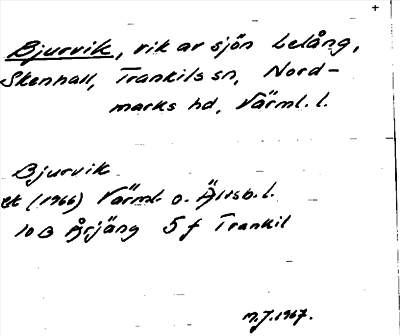 Bjurvik, vik av sjön Lelång,
Skenhall, Trankils sn, Nord-
marks hd, Värml. l.
Bjurvik
ek (1966) Värml. o. Älvsb. l.
10 B Årjäng 5 f Trankil
M.J. 1967.